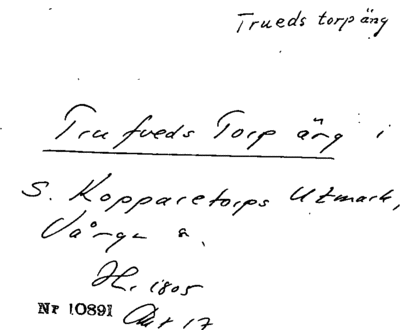 Trueds torp äng
Trufveds Torp äng i
S. Kopparetorps Utmark,
Vånga s.
Hr. 1805
Nr 10891 Akt 17